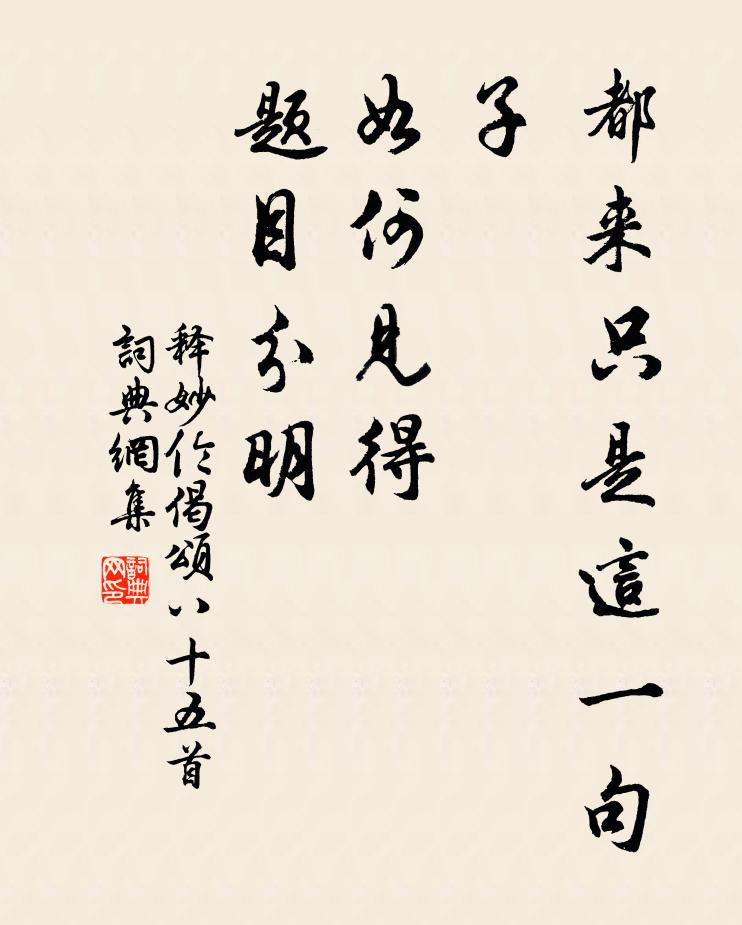 都来只是這一句
子
如何見得
题目分明
释妙伦偈頌八十五首
詞典網集
詞典网印